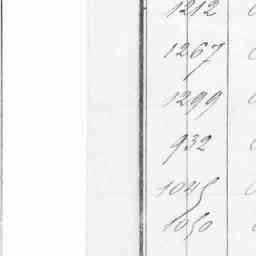 1212
1267
1299
932
1045
1050